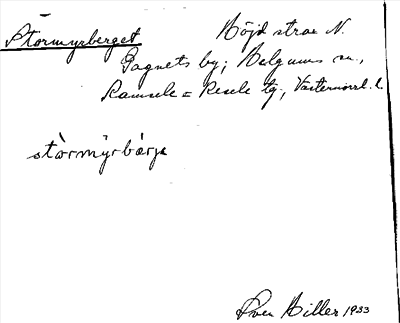 Stormyrberget Höjd strax N.
Gagnets by; Helgums sn.,
Ramsele = Resele tg., Västernorrl. l.
stòrmýrbærje
Sven Hiller 1933